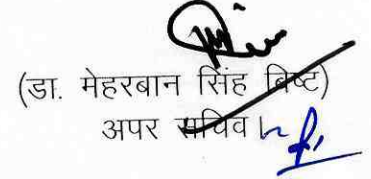 (डा. मेहरबान सिंह बिष्ट)
अपर सचिव।